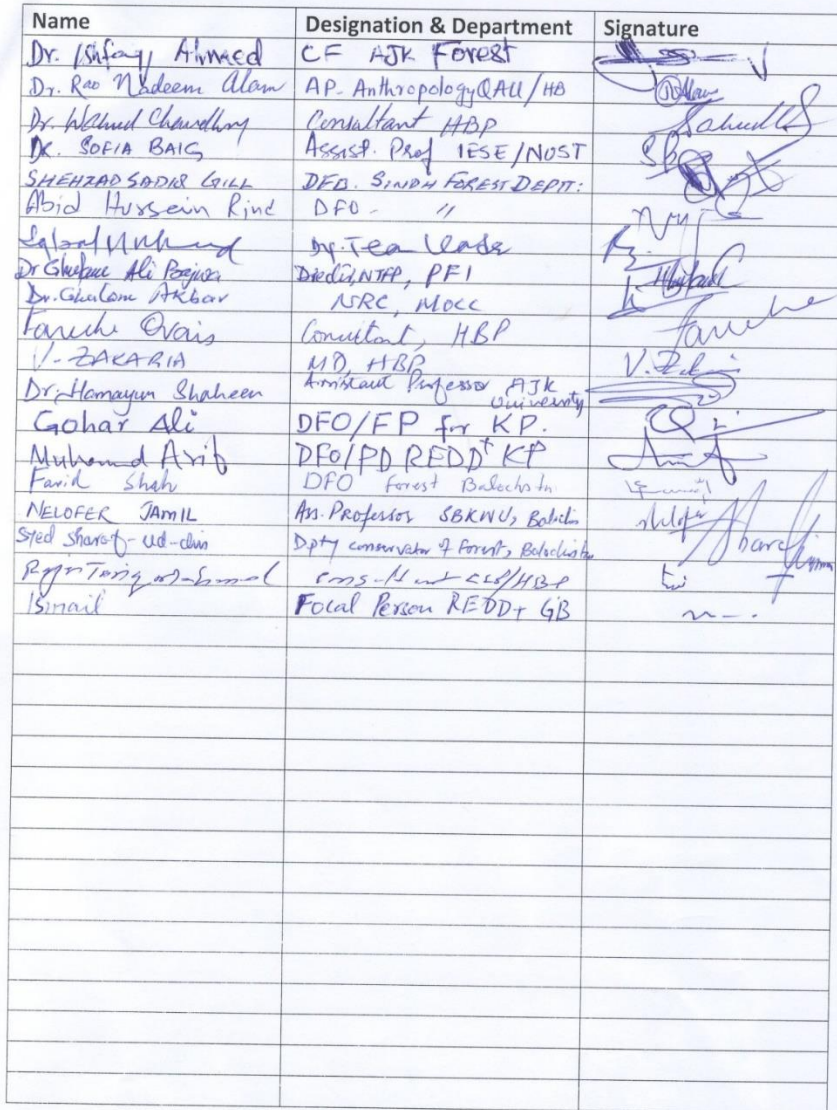 Name Designation & Department Signature
Dr. Ishfaq Ahmed CF AJK Forest
Dr. Rao Nadeem Alam AP-Anthropology QAU/HB
Dr. Wahid Chaudhry Consultant HBP
DR. SOFIA BAIG Assist. Prof IESE/NUST
SHEHZAD SADIQ GILL DFO. SINDH FOREST DEPTT:
Abid Hussein Rind DFO - "
Iqbal Muhammad Dy. Team Leader
Dr Ghulam Ali Bajwa Director, NTFP, PFI
Dr. Ghulam Akbar NRC, MOCC
Faruche Ovais Consultant, HBP
V- ZAKARIA MD, HBP
Dr. Hamayun Shaheen Assistant Professor AJK University
Gohar Ali DFO/FP for KP.
Muhammad Arif DFO/PD REDD+ KP
Farid Shah DFO Forest Balochstn
NELOFER JAMIL Ass. Professor SBKWU, Balochis Nelofer
Syed Sharaf-ud-din Dpty conservator of Forest, Balochistan
Ismail Focal Person REDD+ GB